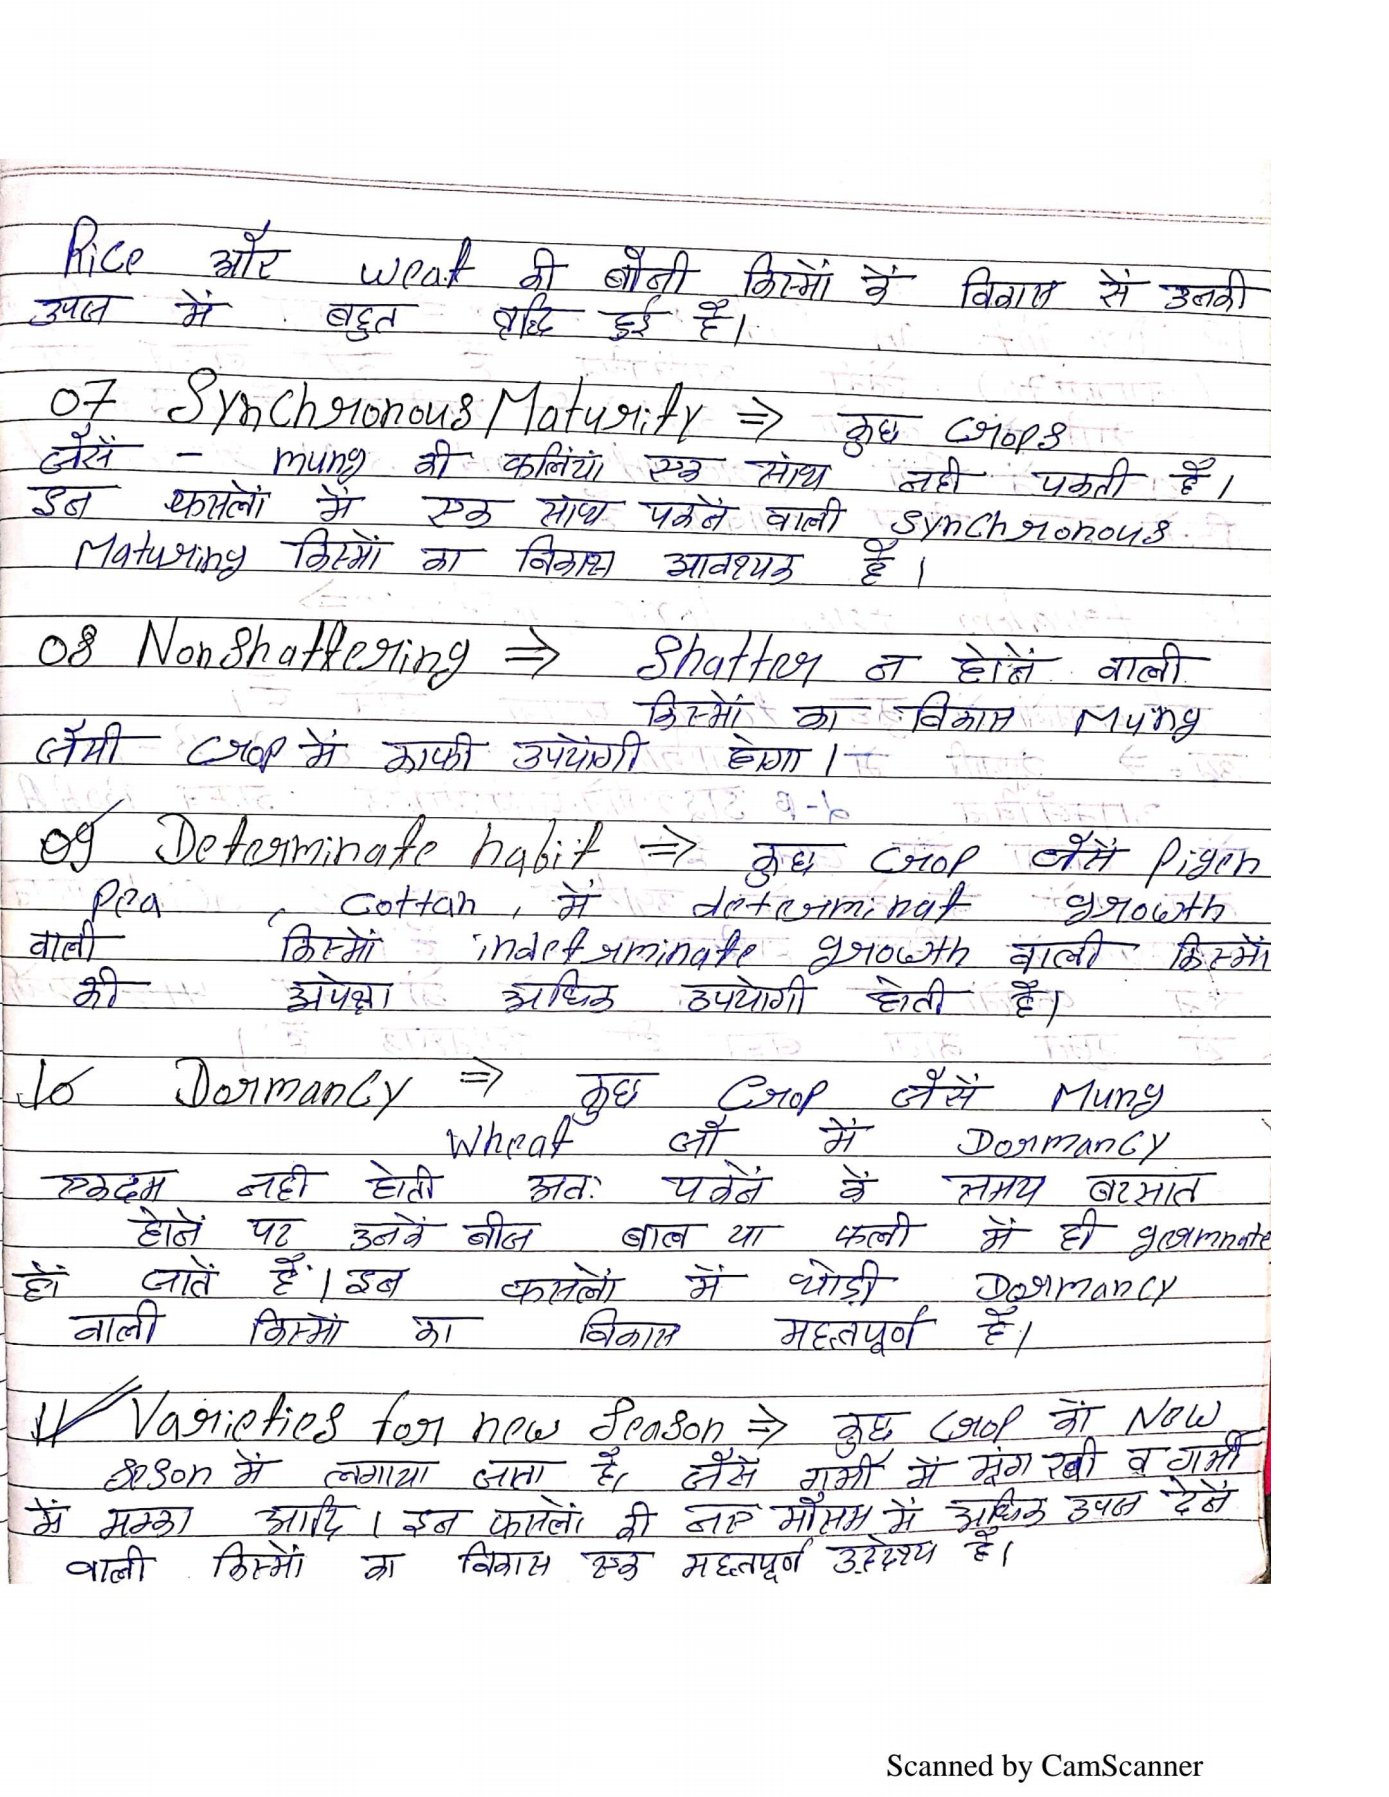 Rice और weat की बौनी किस्मों कें विकास सें उनकी
उपज में बहुत वृद्धि हुई है।
07 Synchronous Maturity ⇒ कुछ crops
जैसें - mung की कलियां एक साथ नही पकती है।
इन फसलों में एक साथ पकेनें वाली synchronous
Maturing किस्मों का विकास आवश्यक है।
08 Nonshattering ⇒ Shatter न होनें वाली
किस्मों का विकास Mung
जैसी crop में काफी उपयोगी होगा।
09 Determinate habit ⇒ कुछ crop जैसें Pigen
Pea, cottan, में determinat growth
वाली किस्मों indeterminate growth वाली किस्मों
की अपेक्षा अधिक उपयोगी होती है।
10 Dormancy ⇒ कुछ crop जैसें Mung
Wheat जौ में Dormancy
एकदम नही होती अतः पकेनें कें समय बरसात
होनें पर उनकें बीज बाल या फली में ही germnate
हों जातें हैं। इन फसलों में थोड़ी Dormancy
वाली किस्मों का विकास महत्तपूर्ण है।
11 Varieties for new Season ⇒ कुछ crop कों New
seson में लगाया जाता है, जैसे गर्मी में मूंग रबी व गर्मी
में मक्का आदि। इन फसलों की नए मौसम में अधिक उपज देनें
वाली किस्मों का विकास एक महत्तपूर्ण उद्देश्य है।
Scanned by CamScanner